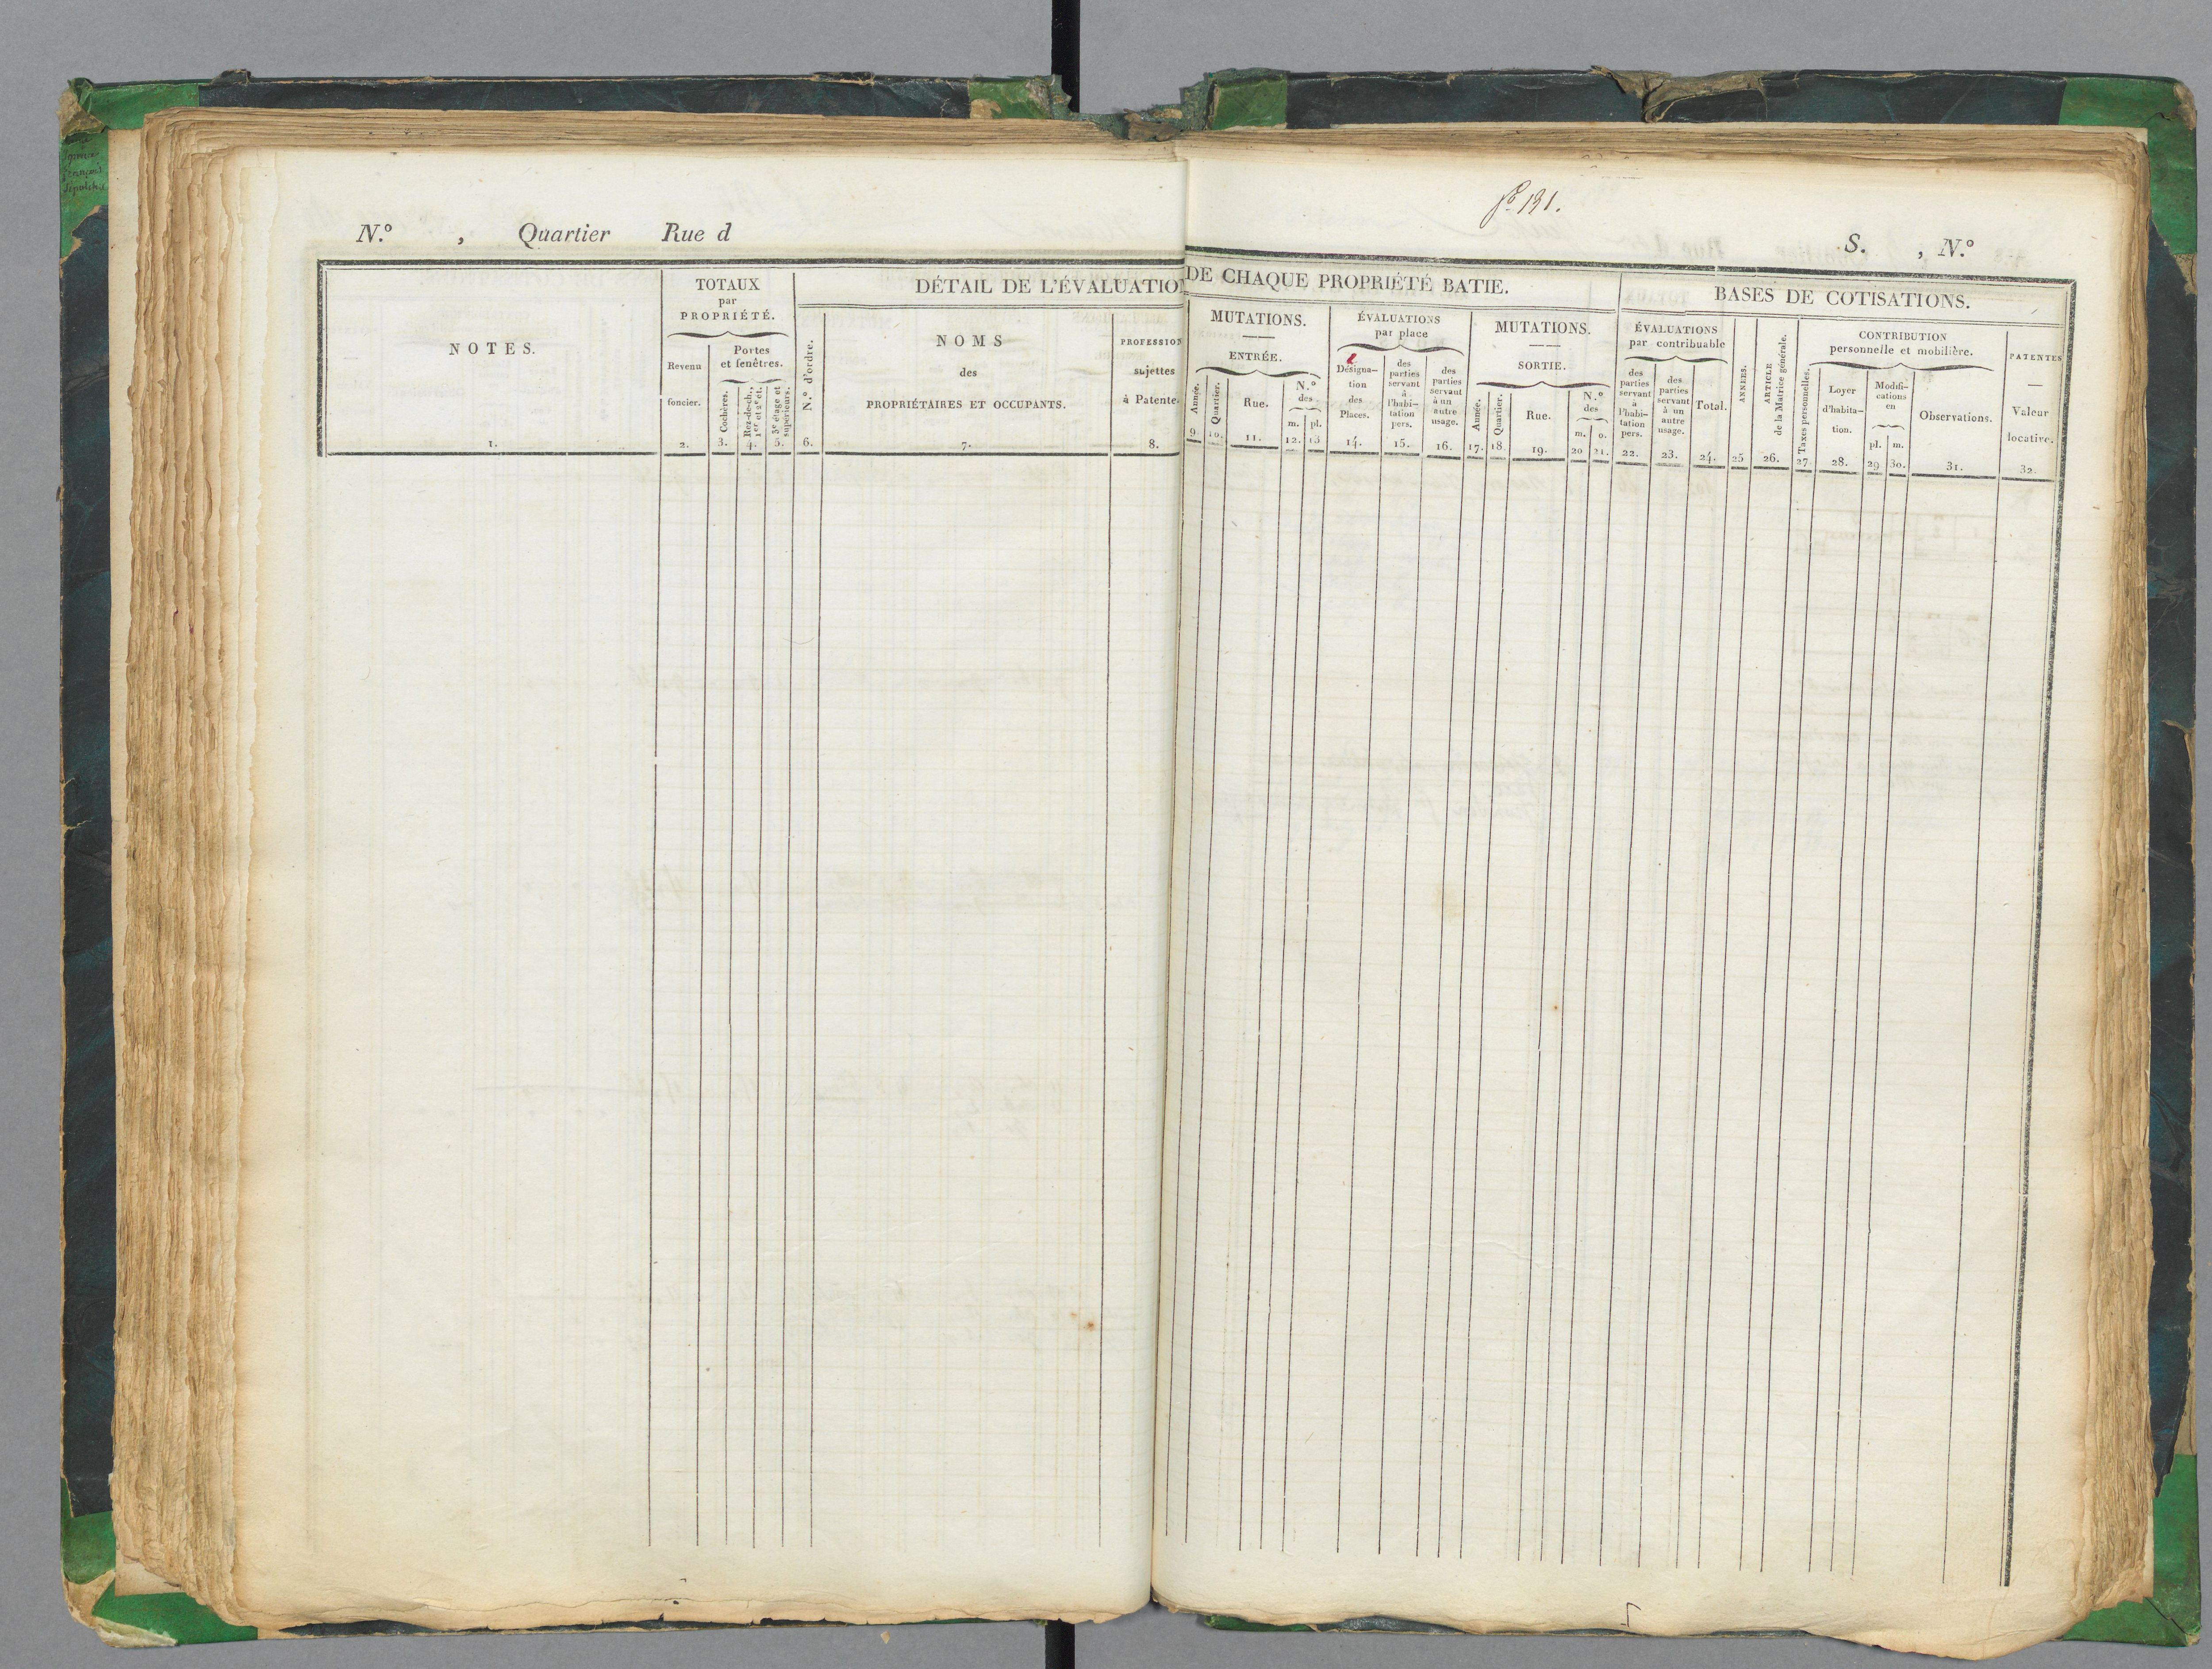 f.º 191.
N.º , Quartier Rue d
S. , N.º
DÉTAIL DE L'ÉVALUATION DE CHAQUE PROPRIÉTÉ BATIE.
BASES DE COTISATIONS.
NOTES.
1.
TOTAUX
par
PROPRIÉTÉ.
Revenu
foncier.
2.
Portes
et fenêtres.
Cochères.
3.
Rez-de-ch.,
1er et 2e ét.
4.
3e étage et
supérieurs.
5.
N.º d'ordre.
6.
NOMS
des
PROPRIÉTAIRES ET OCCUPANTS.
7.
PROFESSION
sujettes
à Patente.
8.
MUTATIONS.
ENTRÉE.
Année.
9.
Quartier.
10.
Rue.
11.
N.º
des
m. pl.
12. 13
ÉVALUATIONS
par place
Désigna-
tion
des
Places.
14.
des
parties
servant
à
l'habi-
tation
pers.
15.
des
parties
servant
à un
autre
usage.
16.
MUTATIONS.
SORTIE.
Année.
17.
Quartier.
18.
Rue.
19.
N.º
des
m. o.
20 21.
ÉVALUATIONS
par contribuable
des
parties
servant
à
l'habi-
tation
pers.
22.
des
parties
servant
à un
autre
usage.
23.
Total.
24.
ANNÉES.
25
ARTICLE
de la Matrice générale.
26.
CONTRIBUTION
personnelle et mobilière.
Taxes personnelles.
27.
Loyer
d'habita-
tion.
28.
Modifi-
cations
en
pl. m.
29 30.
Observations.
31.
PATENTES
Valeur
locative.
32.